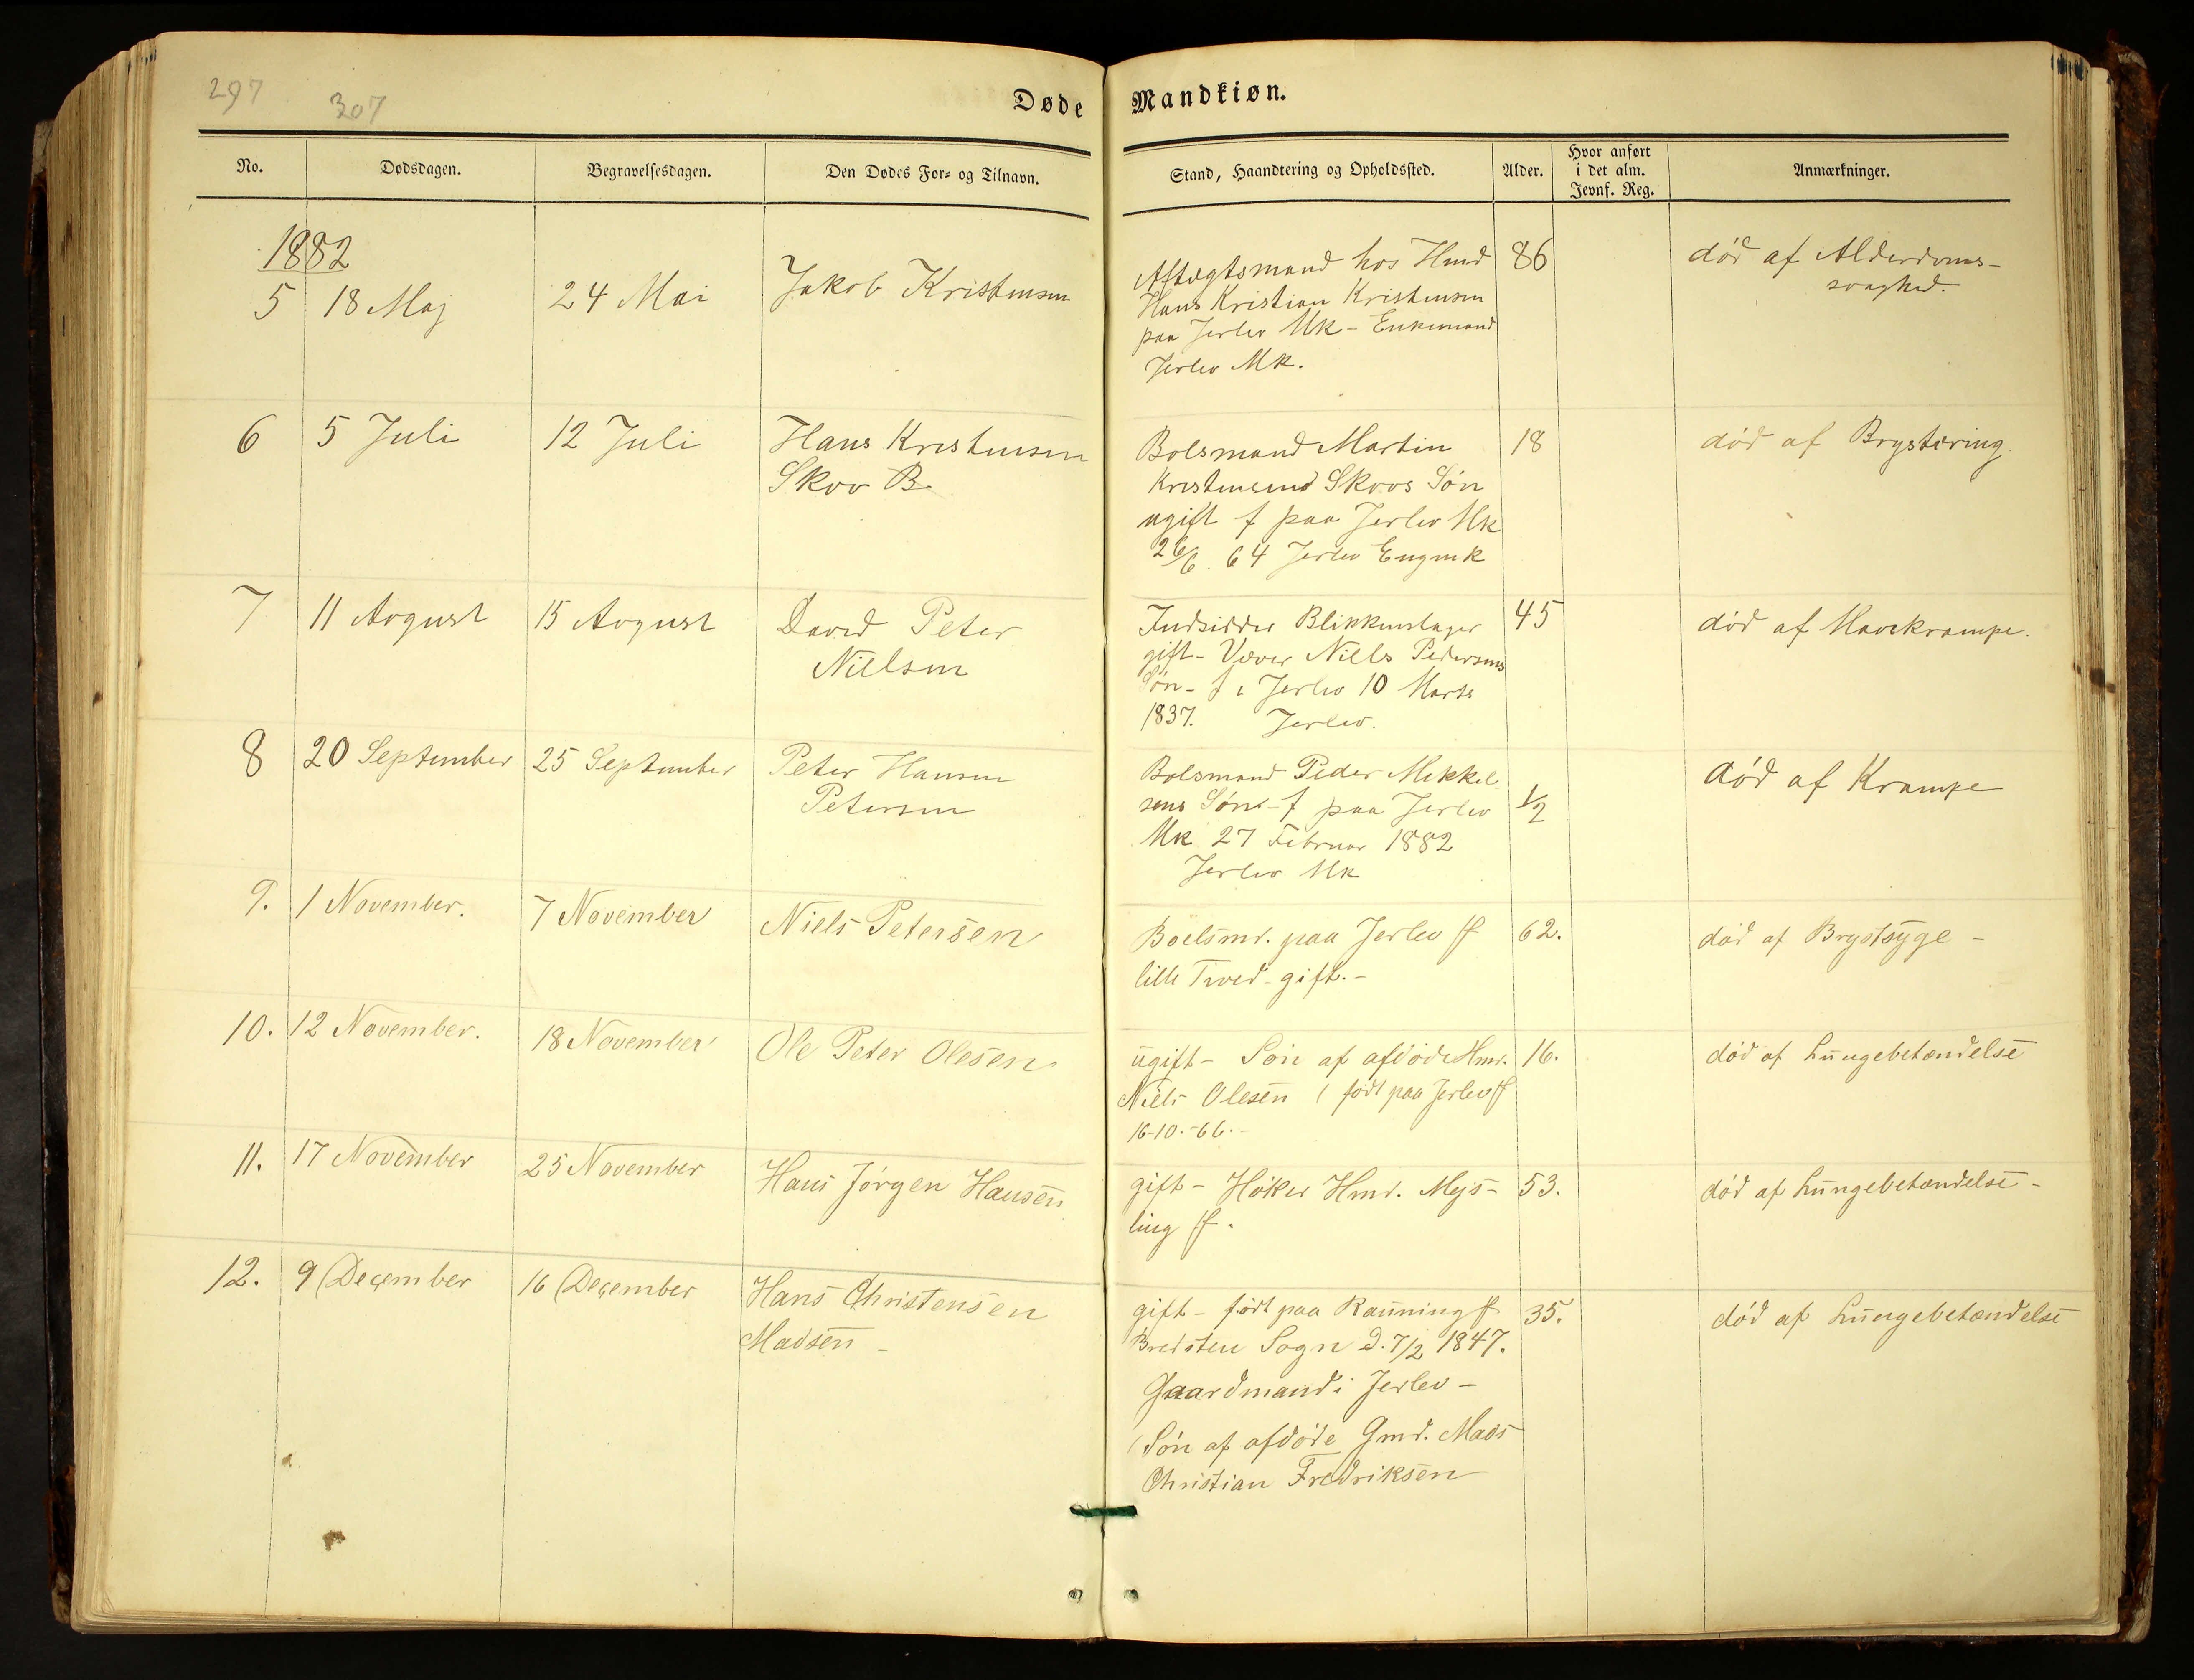 297
307
Døde Mandkiøn.
No. Dødsdagen. Begravelsesdagen. Den Dødes For- og Tilnavn. Stand, Haandtering og Opholdssted. Alder. Hvor anført i det alm. Jevnf. Reg. Anmærkninger.
1882
5 18 Maj 24 Mai Jakob Kristensen
Aftægtsmand hos Hmd 86 død af Alderdoms-
Hans Kristian Kristensen svaghed.
paa Jerlev Mk - Enkemand
Jerlev Mk.
6 5 Juli 12 Juli Hans Kristensen
Skov B
Bolsmand Martin 18 død af Brysttæring.
Kristensens Skovs Søn
ugift f paa Jerlev Mk
26/6 64 Jerlev Engmk
7 11 Avgust 15 Avgust David Peter
Nielsen
Indsidder Blikkenslager 45 død af Mavekrampe.
gift - Væver Niels Pedersens
Søn - f i Jerlev 10 Marts
1837. Jerlev.
8 20 September 25 September Peter Hansen
Petersen
Bolsmand Peder Mikkel- død af Krampe
sens Søn - f paa Jerlev 1/2
Mk 27 Februar 1882
Jerlev Mk
9. 1 November. 7 November Niels Petersen
Boelsmd. paa Jerlev ff 62. død af Brystsyge -
lille Tved - gift. -
10. 12 November. 18 November Ole Peter Olesen
ugift - Søn af afdøde Hmd. 16. død af Lungebetændelse
Niels Olesen ( født paa Jerlev ff
16-10.-66. -
11. 17 November 25 November Hans Jørgen Hansen
gift - Høker Hmd. Mejs- 53. død af Lungebetændelse -
ling ff.
12. 9 December 16 December Hans Christensen
Madsen -
gift - født paa Ravning ff 35. død af Lungebetændelse
Bredsten Sogn d. 7/2 1847.
Gaardmand i Jerlev -
( Søn af afdøde Gmd. Mads
Christian Fredriksen